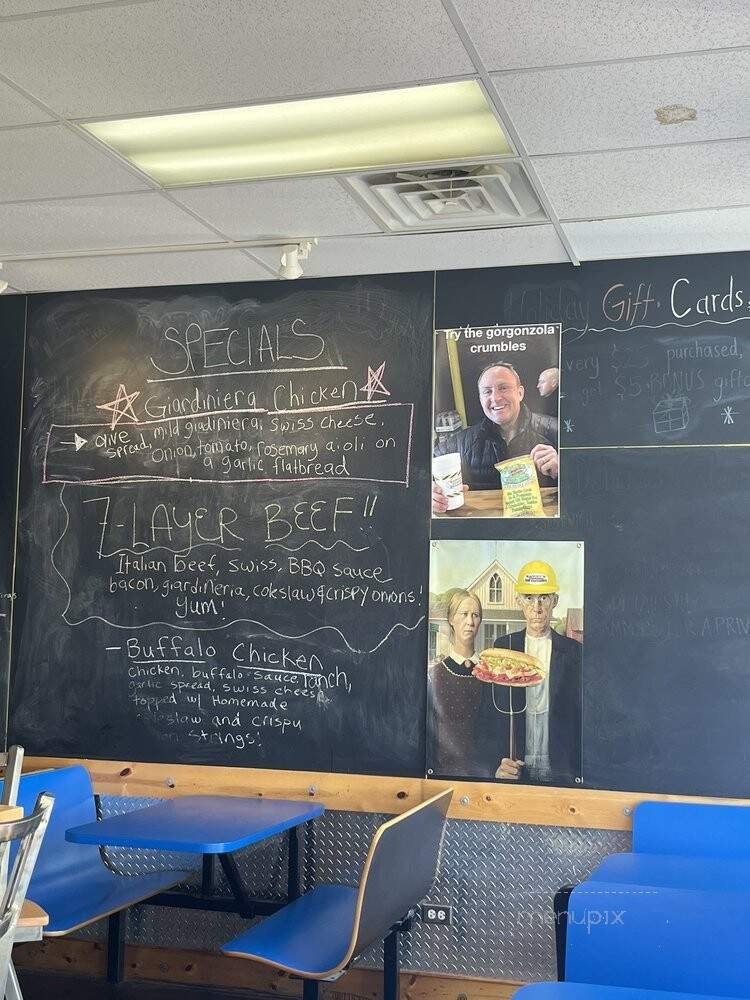 SPECIALS
Giardiniera Chicken
olive spread, mild giardiniera, swiss cheese,
onion, tomato, rosemary aioli on
a garlic flatbread
7-LAYER BEEF!!
Italian beef, swiss, BBQ sauce
bacon, giardineria, coleslaw & crispy onions!
YUM!
- Buffalo Chicken
chicken, buffalo sauce, ranch,
garlic spread, swiss cheese
topped w/ Homemade
coleslaw and crispy
strings!
Try the gorgonzola
crumbles
Holiday Gift Cards
every purchased,
BONUS gift
menupix